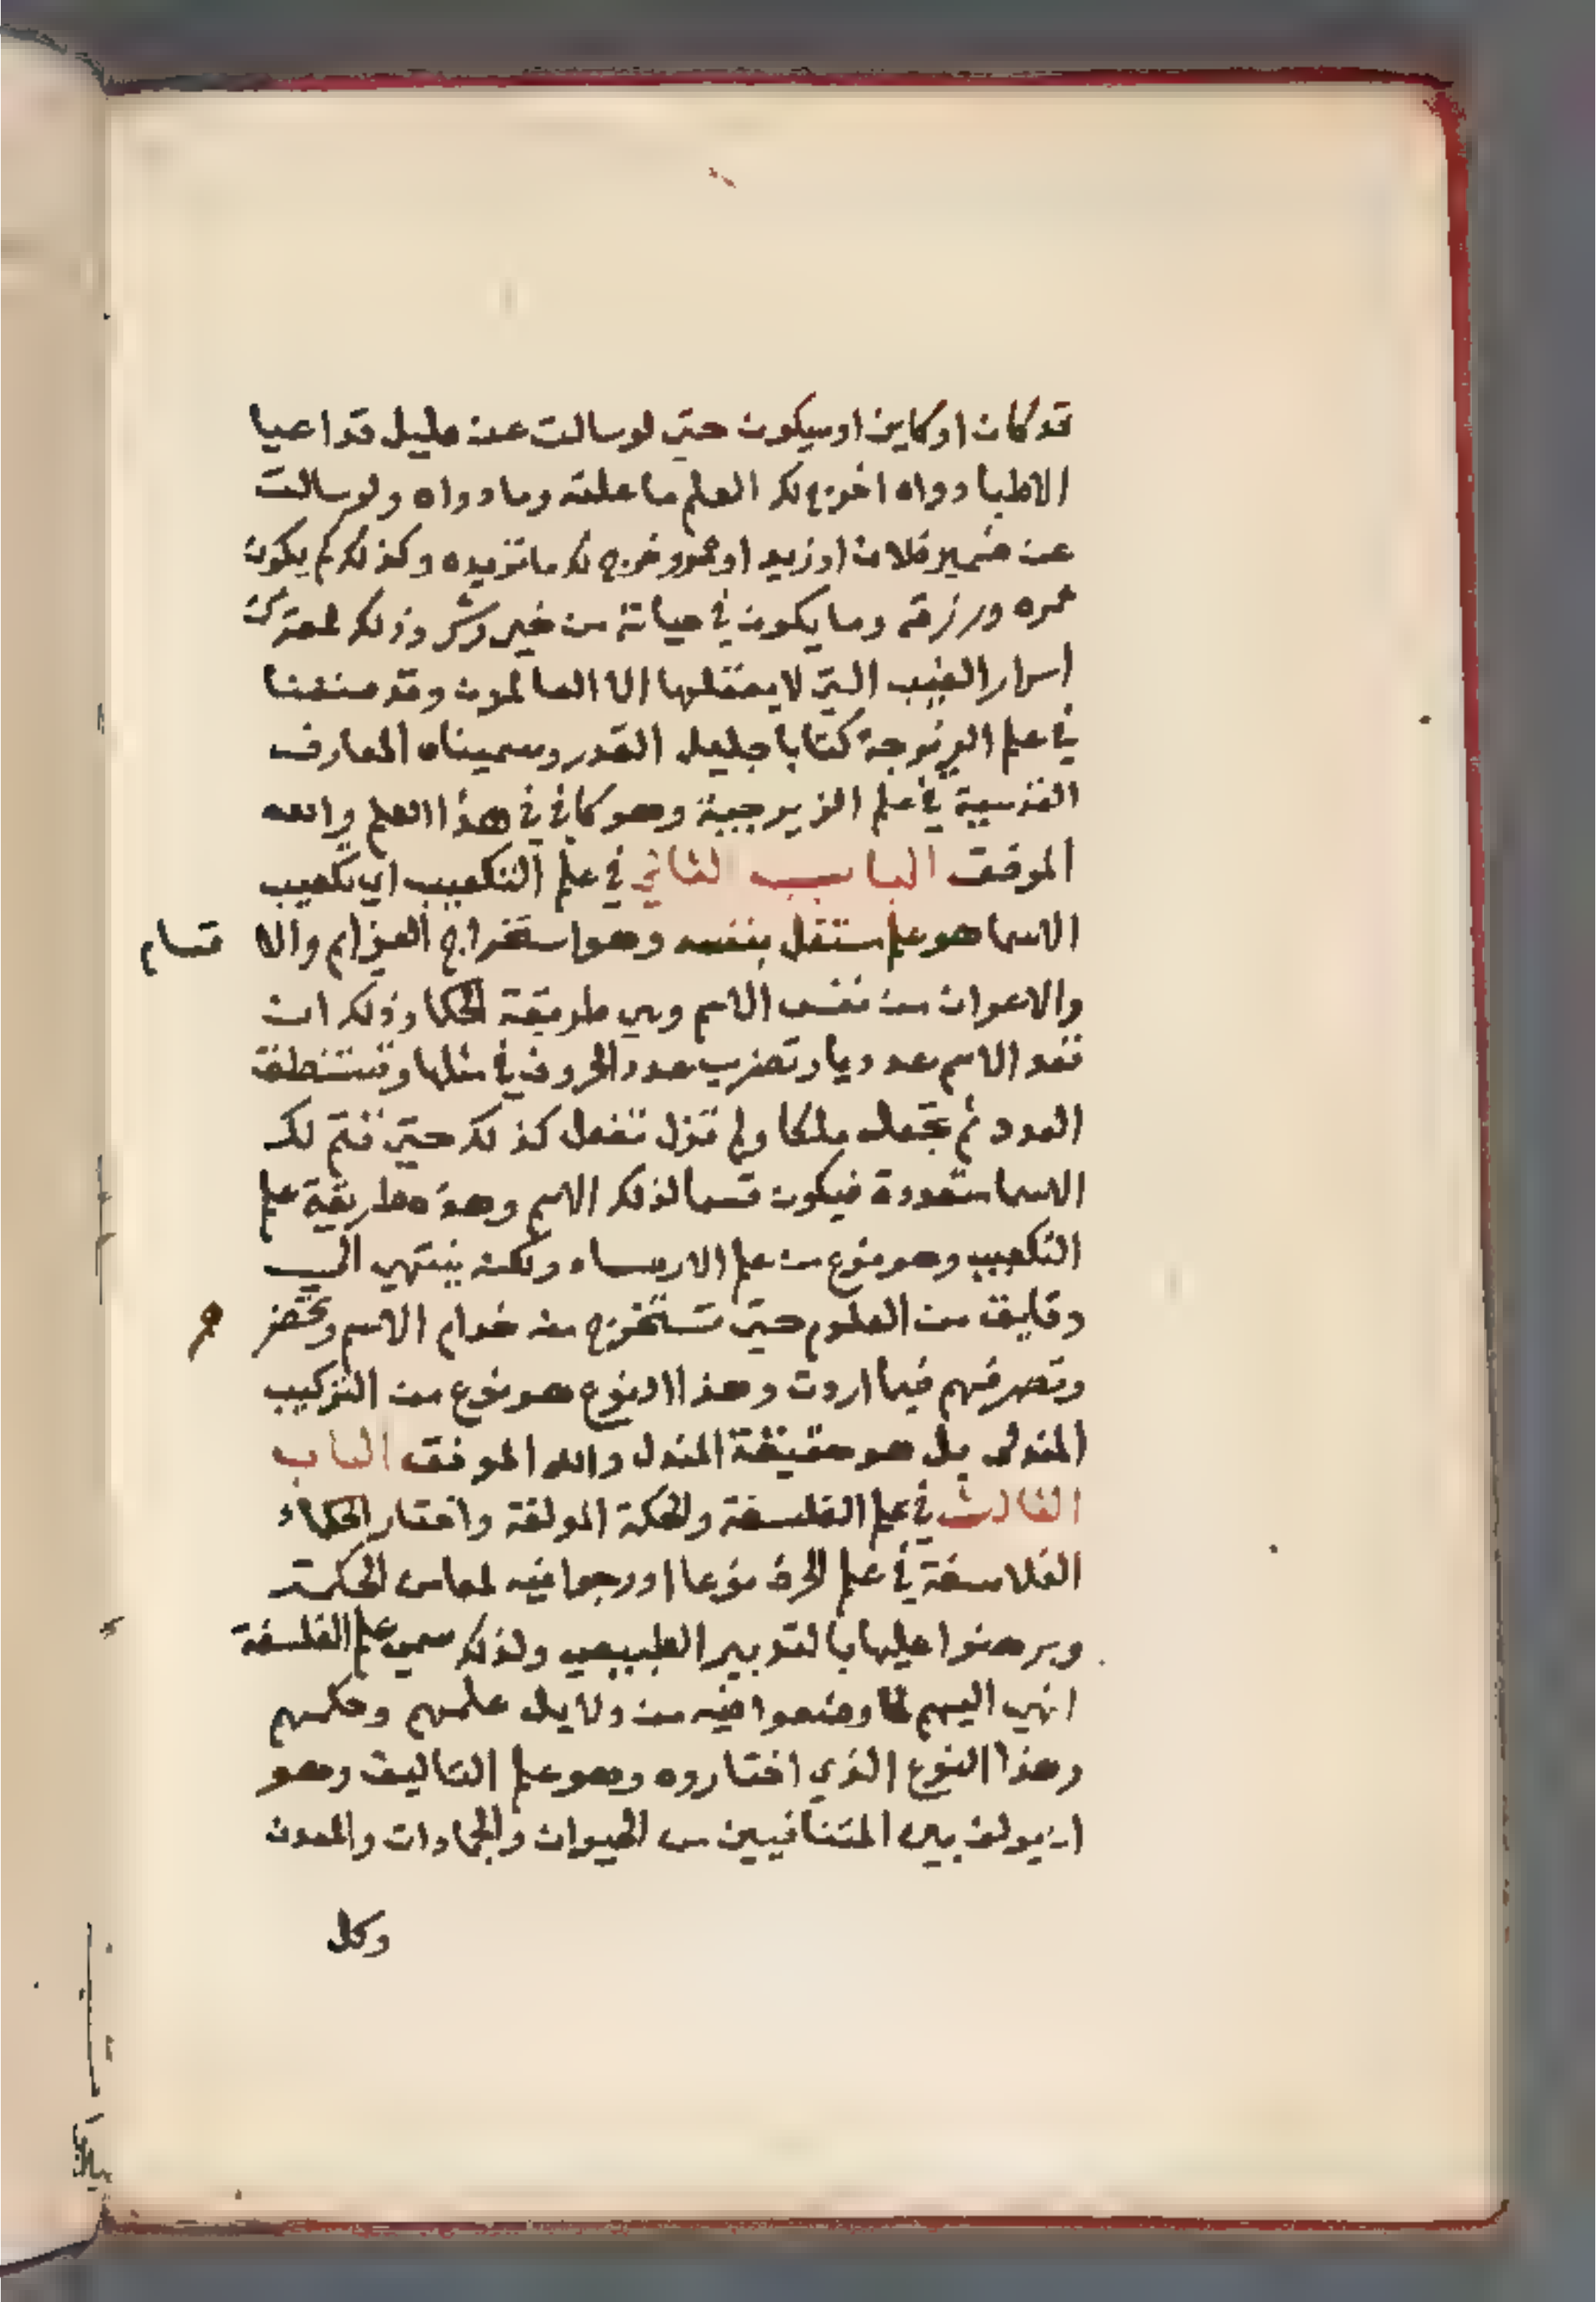 قد كان او كاين او سيكون حتي لو سالت عن عليل قد اعيا
الاطبا دواه اخرج لك العلم ما علته وما دواه ولو سالت
عن ضمير فلان او زيد او عمرو خرج لك ما تريده وكذلك كم يكون
عمره ورزقه وما يكون في حياته من خير وشر وذلك
اسرار الغيب التي لا يعقلها الا العالمون وقد صنفنا
في علم كتابا جليل القدر وسميناه المعارف
القدسية في علم الزيرجية وهو كافي في هذا العلم والله
الموفق الباب الثاني في علم التكعيب اي تكعيب
الاسما هو علم مستقل بنفسه وهو استخراج العزايم والاقسام
والاعوان من نفس الاسم وهي طريقة الحكما وذلك ان
تعد الاسم عدديا وتضرب عدد الحروف في مثلها وتستنطق
العدد ثم تجعله ملكا ولم تزل تفعل كذلك حتي تتم لك
الاسما متعددة فيكون قسما لذلك الاسم وهذه طريقة علم
التكعيب وهو نوع من علم ولكنه ينتهي الي
دقايق من العلوم حتي تستخرج منه خدام الاسم وتحضرهم
وتصرفهم فيما اردت وهذا النوع هو نوع من التركيب
المندلى بل هو حقيقة المندل والله الموفق الباب
الثالث في علم الفلسفة والحكمة المولفة واختار الحكماء
الفلاسفة في علم الحرف نوعا ادرجوا فيه الحكمة
وبرهنوا عليها بالتدبير الطبيعي ولذلك سمي علم الفلسفة
انهي اليهم لما وضعوا فيه من دلايل علمهم وحكمهم
وهذا النوع الذي اختاروه وهو علم التاليف وهو
ان يولف بين المتنافيين من الحيوان والجمادات والمعدن
وكل